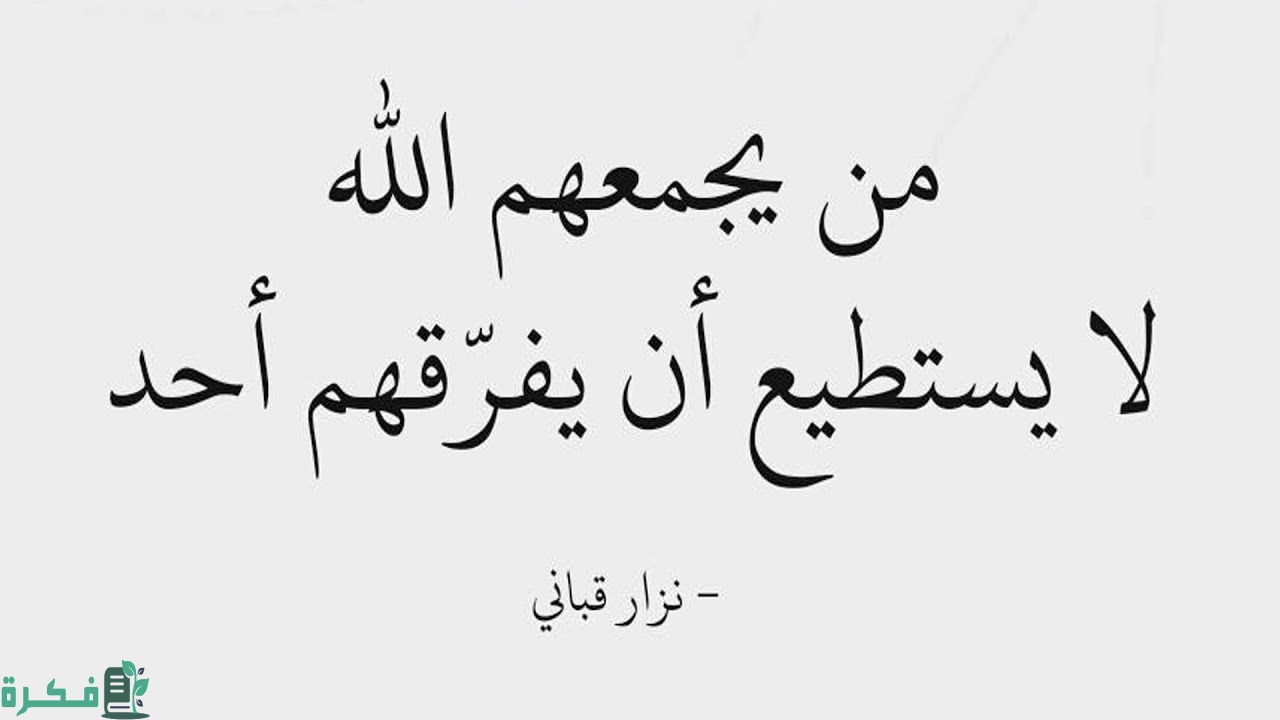 من يجمعهم الله
لا يستطيع أن يفرّقهم أحد
- نزار قباني
فكرة